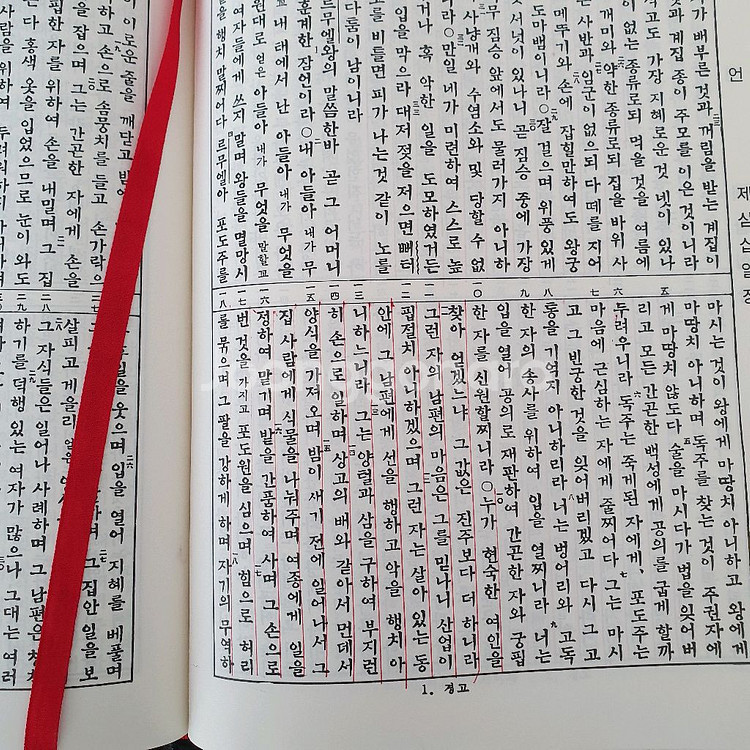 언
제삼십일장
가 배부른것과 꺼림을 받는 계집이
것과 계집 종이 주모를 이은 것이니라
적고도 가장 지혜로운 것 넷이 있나
이 없는 종류로되 먹을 것을 여름에
개미와 약한 종류로되 집을 바위 사
사반과 임군이 없으되 다 떼를 지어
메뚜기와 손에 잡힐만하여도 왕궁
도마뱀이니라 ○잘 걸으며 위풍 있게
것 서넛이 있나니 곧 짐승 중에 가장
무 짐승 앞에서도 물러가지 아니하
사냥개와 수염소와 및 당할수 없
니라 ○만일 네가 미련하여 스스로 높
거나 혹 악한 일을 도모하였거든
입을 막으라 대저 젖을 저으면 뻐터
코를 비틀면 피가 나는것 같이 노를
다툼이 남이니라
르무엘왕의 말씀한바 곧 그 어머니
훈계한 잠언이라 ○내 아들아 내가 무
내 태에서 난 아들아 내가 무엇을
원대로 얻은 아들아 내가 무엇을 말할고
여자들에게 쓰지 말며 왕들을 멸망시
을 행치 말찌어다 르무엘아 포도주를
마시는 것이 왕에게 마땅치 아니하고 왕에게
마땅치 아니하며 독주를 찾는 것이 주권자에
게 마땅치 않도다 술을 마시다가 법을 잊어버
리고 모든 간곤한 백성에게 공의를 굽게 할까
두려우니라 독주는 죽게된 자에게, 포도주는
마음에 근심하는 자에게 줄찌어다 그는 마시
고 그 빈궁한 것을 잊어버리겠고 다시 그 고
통을 기억지 아니하리라 너는 벙어리와 고독
한 자의 송사를 위하여 입을 열찌니라 너는
입을 열어 공의로 재판하여 간곤한 자와 궁핍
한 자를 신원할찌니라 ○누가 현숙한 여인을
찾아 얻겠느냐 그 값은 진주보다 더 하니라
그런 자의 남편의 마음은 그를 믿나니 산업이
핍절치 아니하겠으며 그런 자는 살아 있는 동
안에 그 남편에게 선을 행하고 악을 행치 아
니하느니라 그는 양털과 삼을 구하여 부지런
히 손으로 일하며 상고의 배와 같아서 먼데서
양식을 가져 오며 밤이 새기 전에 일어나서 그
집 사람에게 식물을 나눠주며 여종에게 일을
정하여 맡기며 밭을 간품하여 사며 그 손으로
번 것을 가지고 포도원을 심으며 힘으로 허리
를 묶으며 그 팔을 강하게 하며 자기의 무역하
1. 경고
이 이로운 줄을 깨닫고 밤에
하고 손으로 솜뭉치를 들고 손가락으
을 잡으며 그는 간곤한 자에게 손을
핍한 자를 위하여 손을 내밀며 그 집
다 홍색 옷을 입었으므로 눈이 와도
사람을 위하여 두려워하지
일을 웃으며 입을 열어 지혜를 베풀며
그 집안 일을 보
살피고 게을리
그 자식들은 일어나 사례하며 그 남편은
하기를 덕행 있는 여자가 많으나 그대는 여러